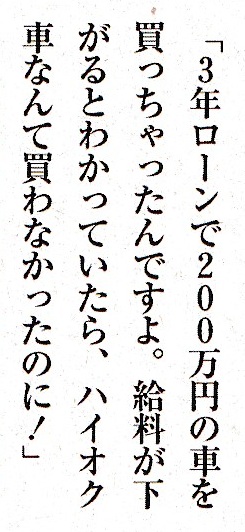 「3年ローンで200万円の車を
買っちゃったんですよ。給料が下
がるとわかっていたら、ハイオク
車なんて買わなかったのに!」